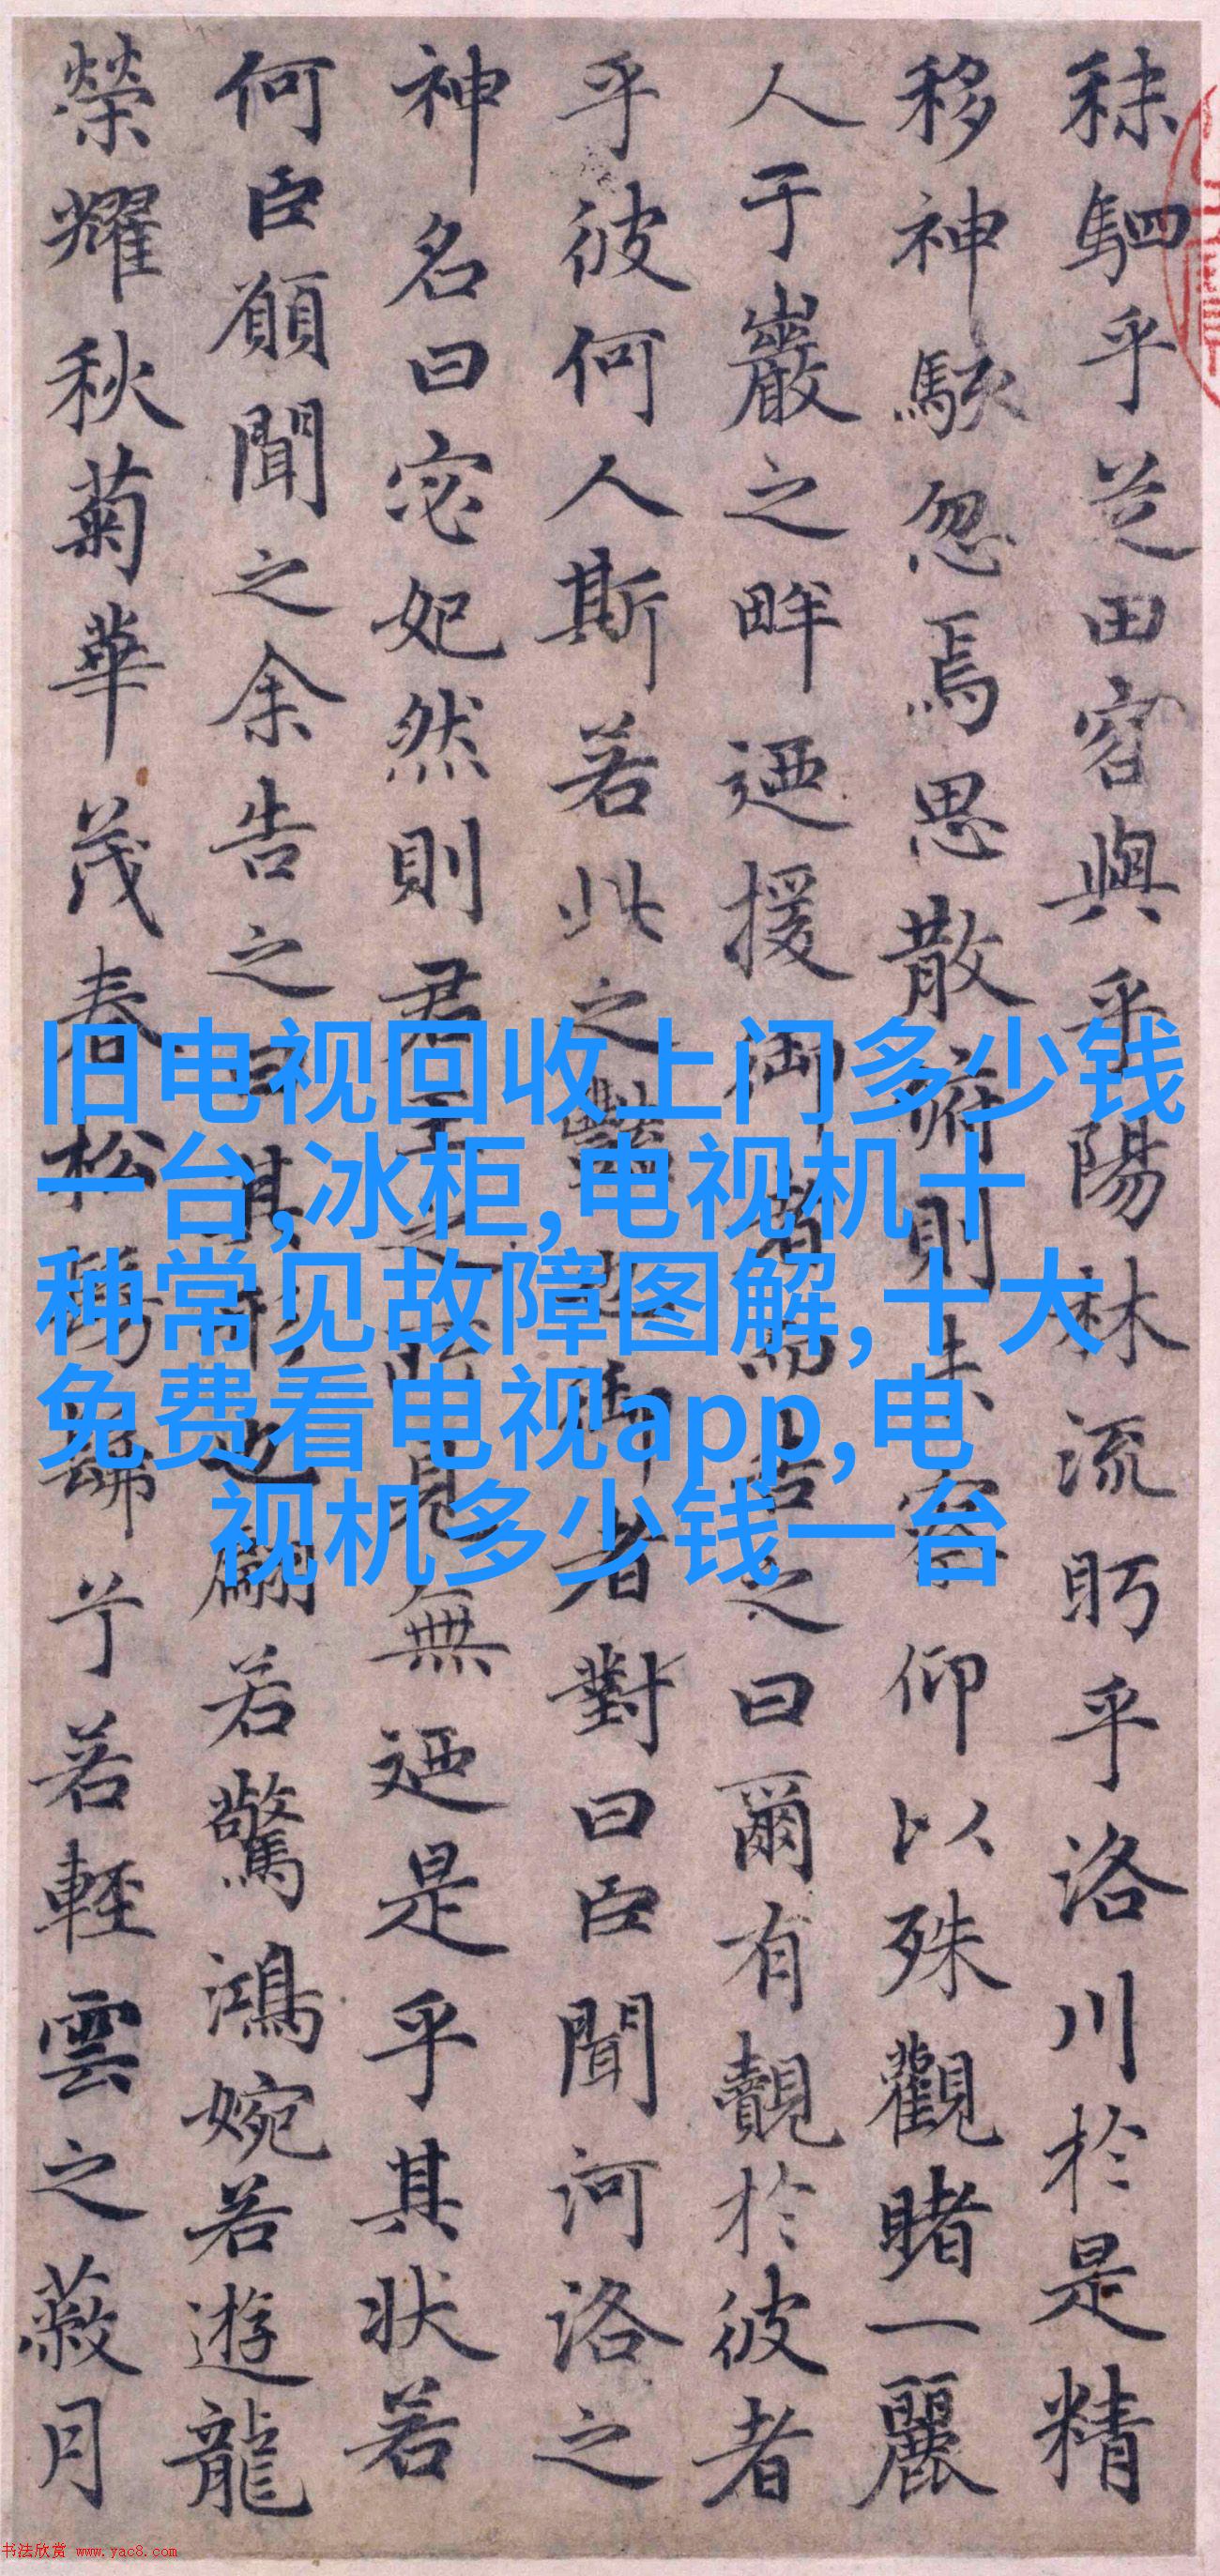 秣駟乎芝田容與乎陽林流眄乎洛川於是精
移神駭忽焉思散俯則未察仰以殊觀睹一麗
人于巖之畔迺援御者告之曰爾有覿於彼者
乎彼何人斯若此之豔也御者對曰臣聞河洛之
神名曰宓妃然則君王之所見無迺是乎其状若
何臣願聞之余告之曰其形也翩若驚鴻婉若遊龍
榮耀秋菊華茂春松髣髴兮若輕雲之蔽月
旧电视回收上门多少钱
一台,冰柜,电视机十
种常见故障图解,十大
免费看电视app,电
视机多少钱一台
书法欣赏 www.yac8.com